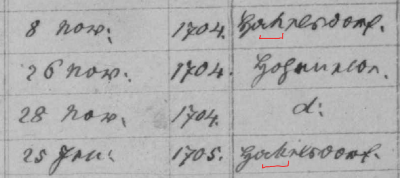 8 Nov: 1704. Hakelsdorf.
26 Nov: 1704. 
28 Nov: 1704. d:
25 Jan: 1705. Hakelsdorf.